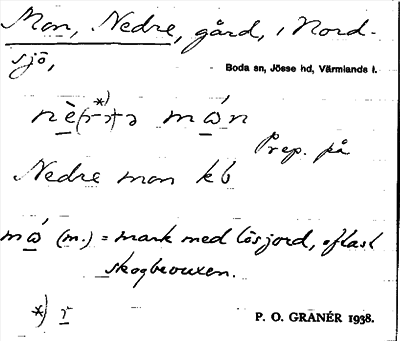 Mon, Nedre, gård, i Nord-
sjö,
Boda sn, Jösse hd, Värmlands l.
Prep. på
Nedre mon kb
(m.) = mark med lös jord, oftast
skogbevuxen.
*) r
P. O. GRANÉR 1938.